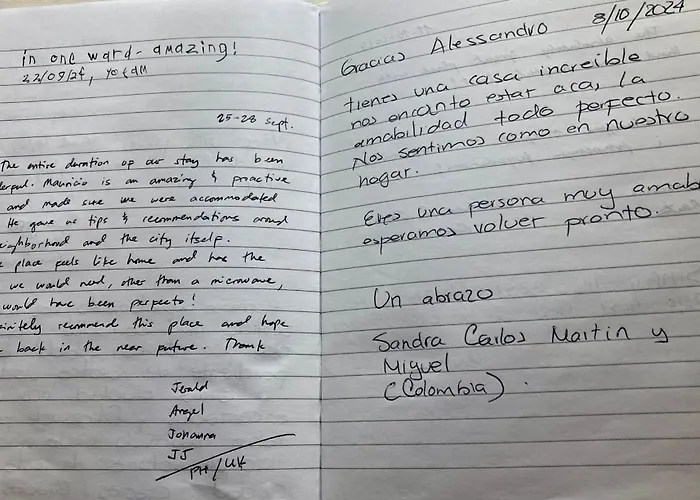 in one word - amazing!
22/09/24, yotam
25-28 sept.
The entire duration of our stay has been
derful. Mauricio is an amazing & proactive
and made sure we were accommodated
He gave us tips & recommendations around
eighborhood and the city itself.
place feels like home and has the
we would need, other than a microwave,
would have been perfecto!
initely recommend this place and hope
back in the near future. Thank
Jerald
Angel
Johanna
JJ
PH/UK
8/10/2024
Gracias Alessandro
tienes una casa increible
nos encanto estar aca, la
amabilidad todo perfecto.
Nos sentimos como en nuestro
hogar.
Eres una persona muy amab
esperamos volver pronto.
Un abrazo
Sandra Carlos Martin y
Miguel
(Colombia).